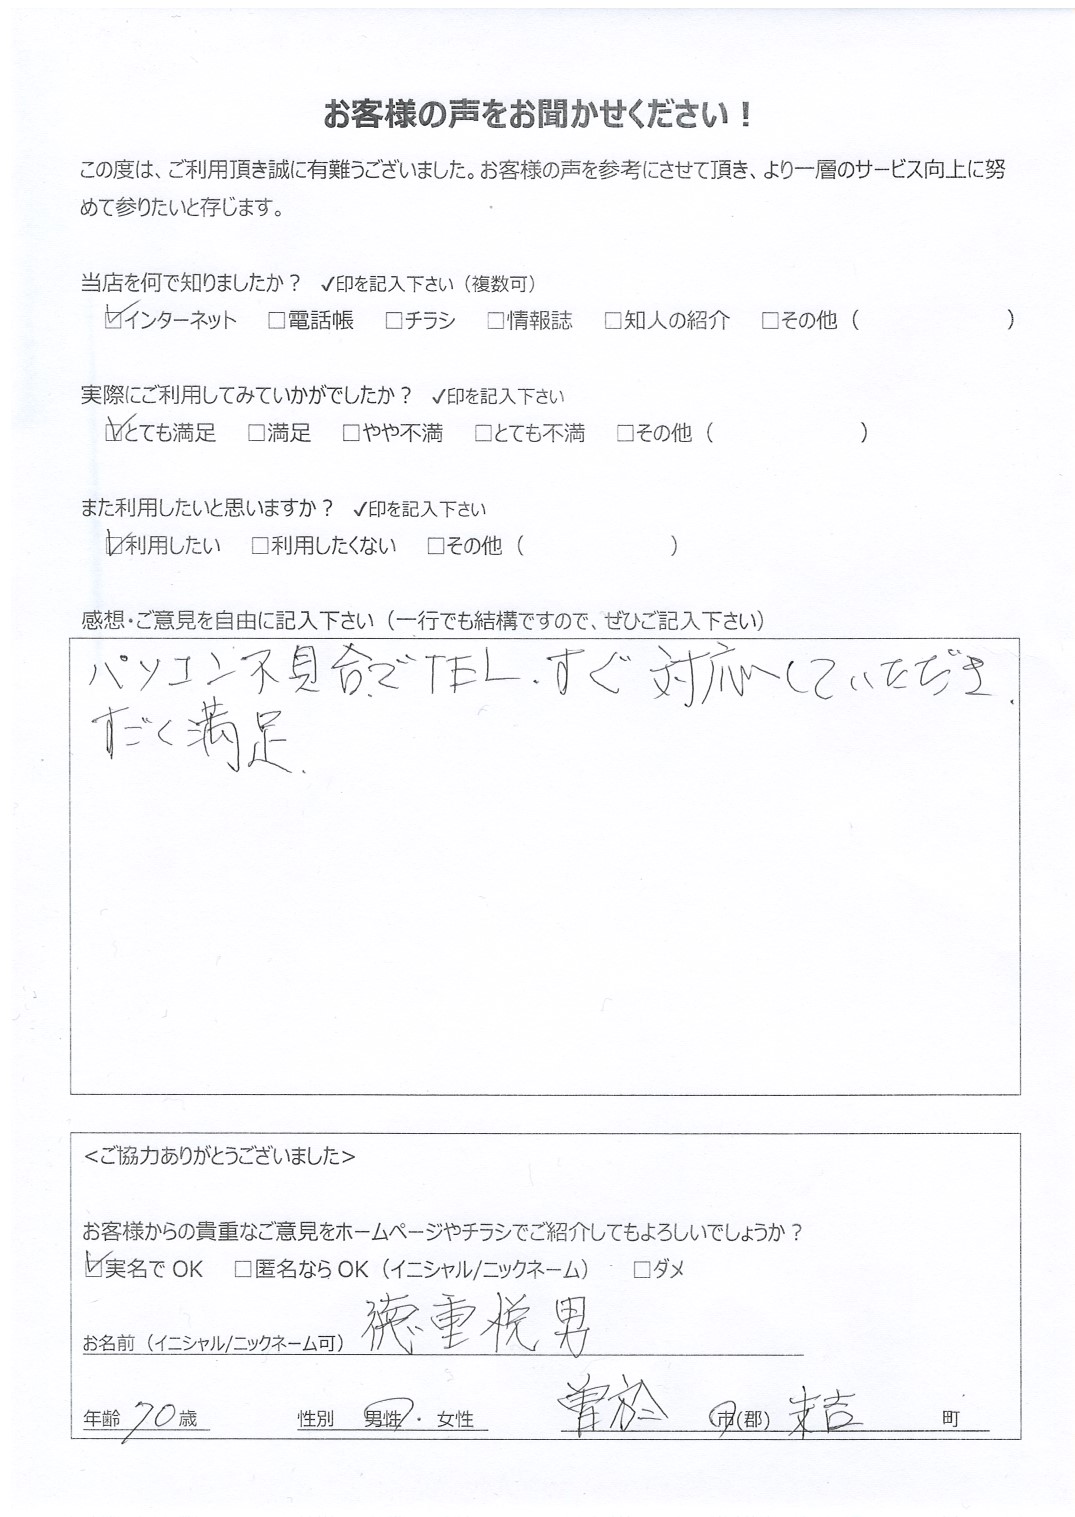 お客様の声をお聞かせください！
この度は、ご利用頂き誠に有難うございました。お客様の声を参考にさせて頂き、より一層のサービス向上に努
めて参りたいと存じます。
当店を何で知りましたか？ ✓印を記入下さい（複数可）
☑インターネット □電話帳 □チラシ □情報誌 □知人の紹介 □その他（ ）
実際にご利用してみていかがでしたか？ ✓印を記入下さい
☑とても満足 □満足 □やや不満 □とても不満 □その他（ ）
また利用したいと思いますか？ ✓印を記入下さい
☑利用したい □利用したくない □その他（ ）
感想・ご意見を自由に記入下さい（一行でも結構ですので、ぜひご記入下さい）
パソコン不具合でTEL.すぐ対応へしていただき.
すごく満足.
<ご協力ありがとうございました>
お客様からの貴重なご意見をホームページやチラシでご紹介してもよろしいでしょうか？
☑実名でOK □匿名ならOK（イニシャル/ニックネーム） □ダメ
お名前（イニシャル/ニックネーム可） 徳重悦男
年齢 70 歳 性別 男性・女性 曽於 市(郡) 末吉 町